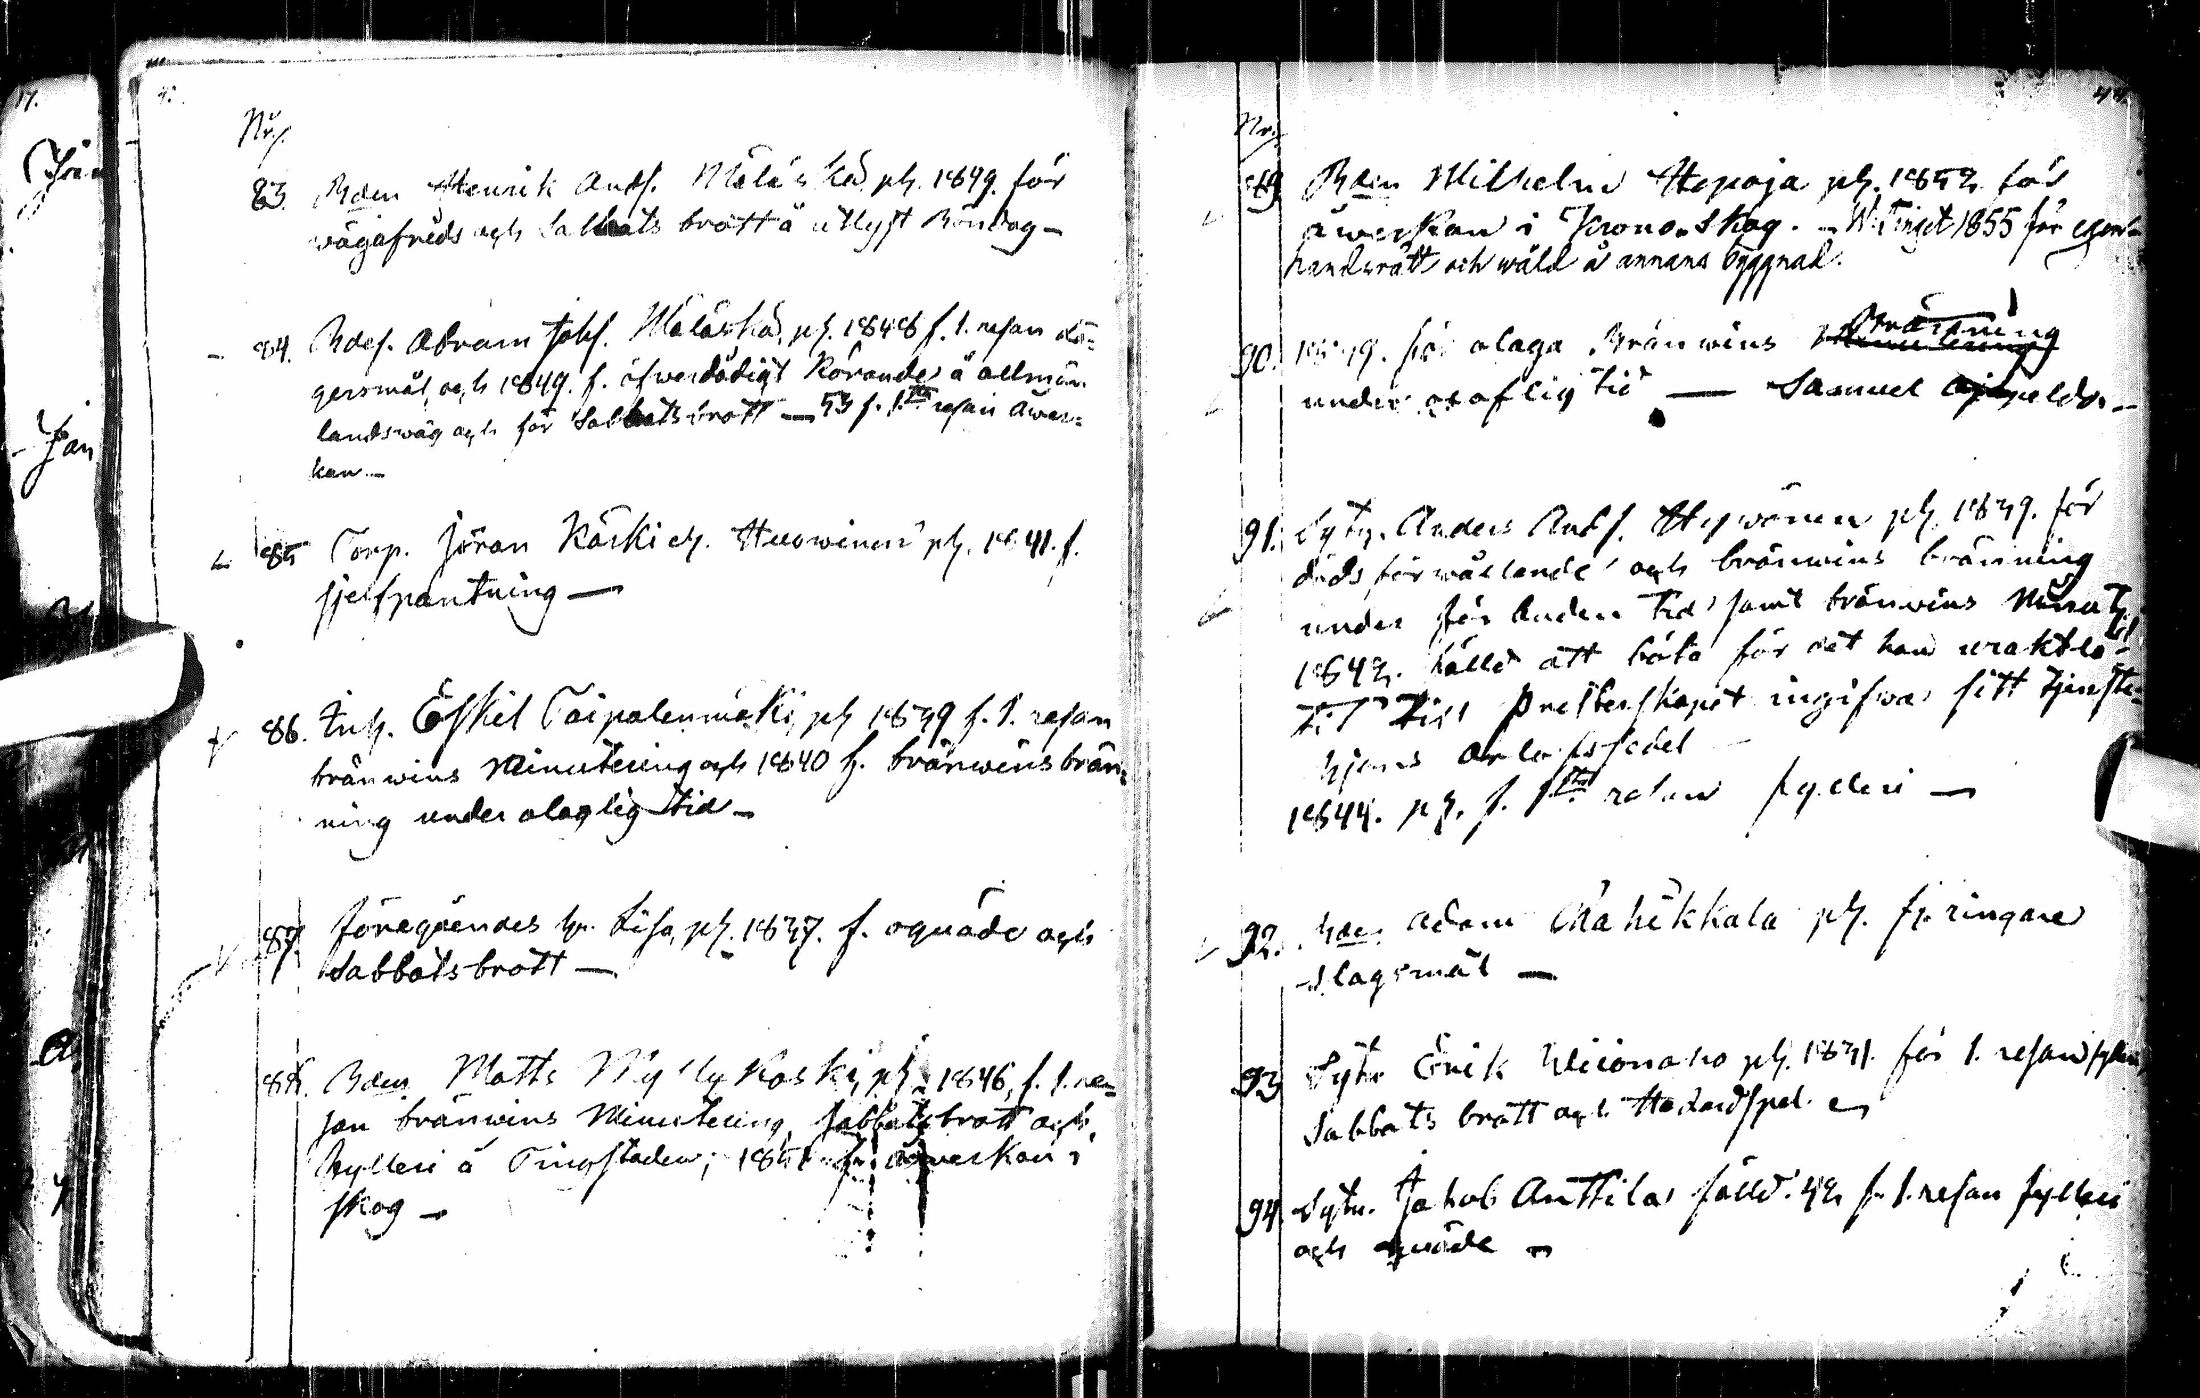 Nr.
83. Bden Henrik Andf. Mälöskä, plf. 1849. för
wägafreds och Sabbats brott å utlyst Böndag —
84. Bdes. Abram Johf. Mäläskä, plf. 1848 f. 1. resan lä-
gersmål, och 1849. f. öfwerdådigt Körande å allmän
landswäg och för Sabbatsbrott — 53 f. 1.sta resan åwer-
kan —
85 Torp. Jöran Käski ell. Huowinen plf. 1841. f.
sjelfpantning —
86. Inh. Eskel Taipalenmäki, plf 1839 f. 1. resan
bränwins Minutering och 1840 f. bränwinsbrän-
ning under olaglig tid —
87 Föregåendes h. Lisa, plf. 1837. f. oquäde och
Sabbatsbrott —
88. Bden Matts Myllykoski, plf. 1846, f. 1. re-
san bränwins Minutering, Sabbatsbrott och
fylleri å Tingstaden; 1851 f. åwerkan i
skog —
44.
Nr.
89 Bden Wilhelm Hepoja plf. 1852. för
åwerkan i Krono-skog. — W. Tinget 1855 för egen-
handsrätt och wåld å annans byggnad.
90. 1839. för olaga Bränwins Bränning
under olaflig tid — Samuel
91. Sytn. Anders Andf. Hywönen plf. 1839. för
dödsförwållande och bränwins bränning
under förbuden tid samt bränwins
1842. fälld att böta för det han uraktlå-
tit till Presterskapet ingifwa sitt tjenste-
hjons orlofssedel
1844. plf. f. 1sta resan fylleri —
92. Bden Adam Mahikkala plf. f. ringare
slagsmål —
93 Sytn Erik Wiionaho plf. 1831. för 1. resan fylleri
Sabbats brott och Hazardspel
94. Sytn. Jakob Anttila fälld. 42 f. 1. resan fylleri
och oquäde